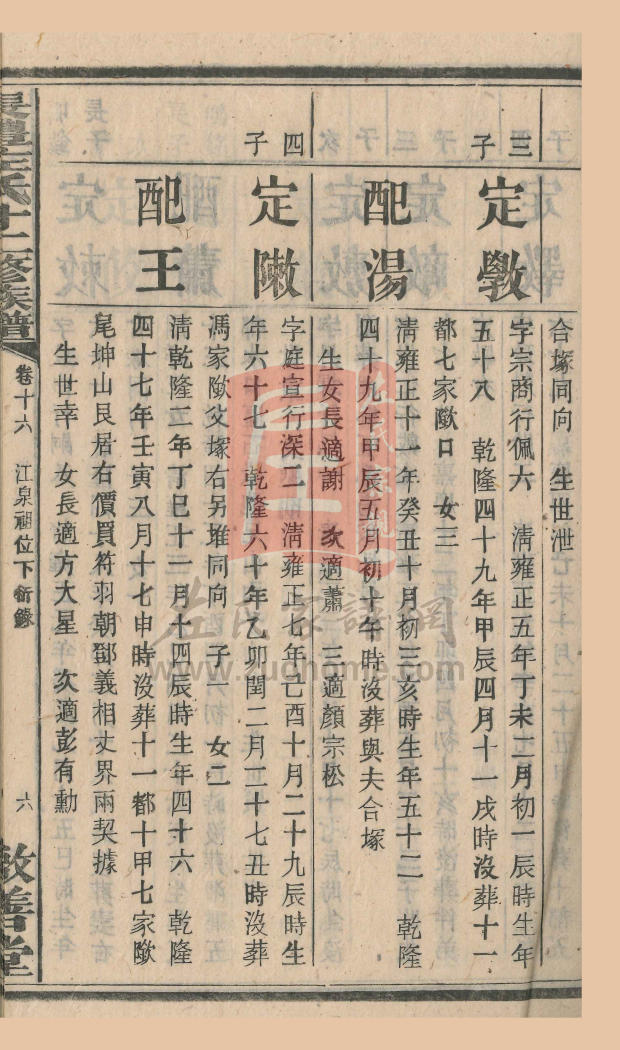 合塚同向　生世泄
三子
定斆
字宗商行佩六　清雍正五年丁未二月初一辰時生年
五十八　乾隆四十九年甲辰四月十一戌時没葬十一
都七家歘口　女三
配湯
清雍正十一年癸丑十月初三亥時生年五十二　乾隆
四十九年甲辰五月初十午時没葬與夫合塚
生女長適謝　次適蕭　三適顏宗松
四子
定
字庭宣行深二　清雍正七年己酉十月二十九辰時生
年六十七　乾隆六十年乙卯閏二月二十七丑時没葬
馮家歘父塚右另堆同向　子一　女二
配王
清乾隆二年丁巳十一月十四辰時生年四十六　乾隆
四十七年壬寅八月十七申時没葬十一都十甲七家歘
尾坤山艮居右價買符羽朝鄧義相丈界兩契據
生世幸　女長適方大星　次適彭有勳
左氏十二修族譜
卷十六　江泉祖位下衍錄
六
敦善堂
左氏家譜網
www.zuohome.com